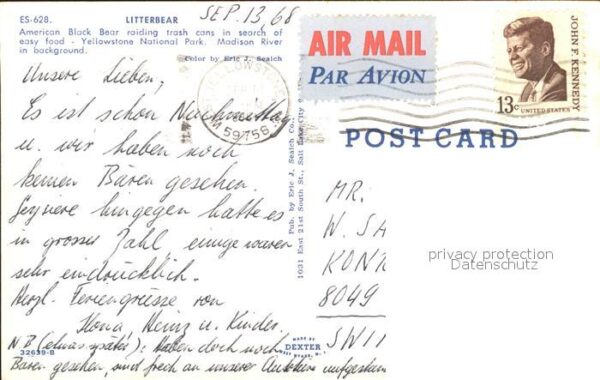 SEP. 13, 68
ES-628. LITTERBEAR
American Black Bear raiding trash cans in search of
easy food - Yellowstone National Park. Madison River
in background.
Color by Eric J. Seaich
Unsere Lieben,
Es ist schon Nachmittag
u. wir haben noch
keinen Bären gesehen.
hingegen hatte es
in grosser Zahl, einige waren
sehr eindrücklich.
Herzl. Feriengrüsse von
Ilona, Heinz u. Kinder.
NB (etwas später): Haben doch noch
Bären gesehen, sind frech an unserer aufgestan
32639-B
Pub. by Eric J. Seaich Co.
1031 East 21st South St., Salt Lake City
MADE BY
DEXTER
WEST NYACK, N.Y.
YELLOWSTONE
59756
AIR MAIL
PAR AVION
JOHN F. KENNEDY
13c UNITED STATES
POST CARD
MR.
W. SA
KONR
8049
SWI
privacy protection
Datenschutz